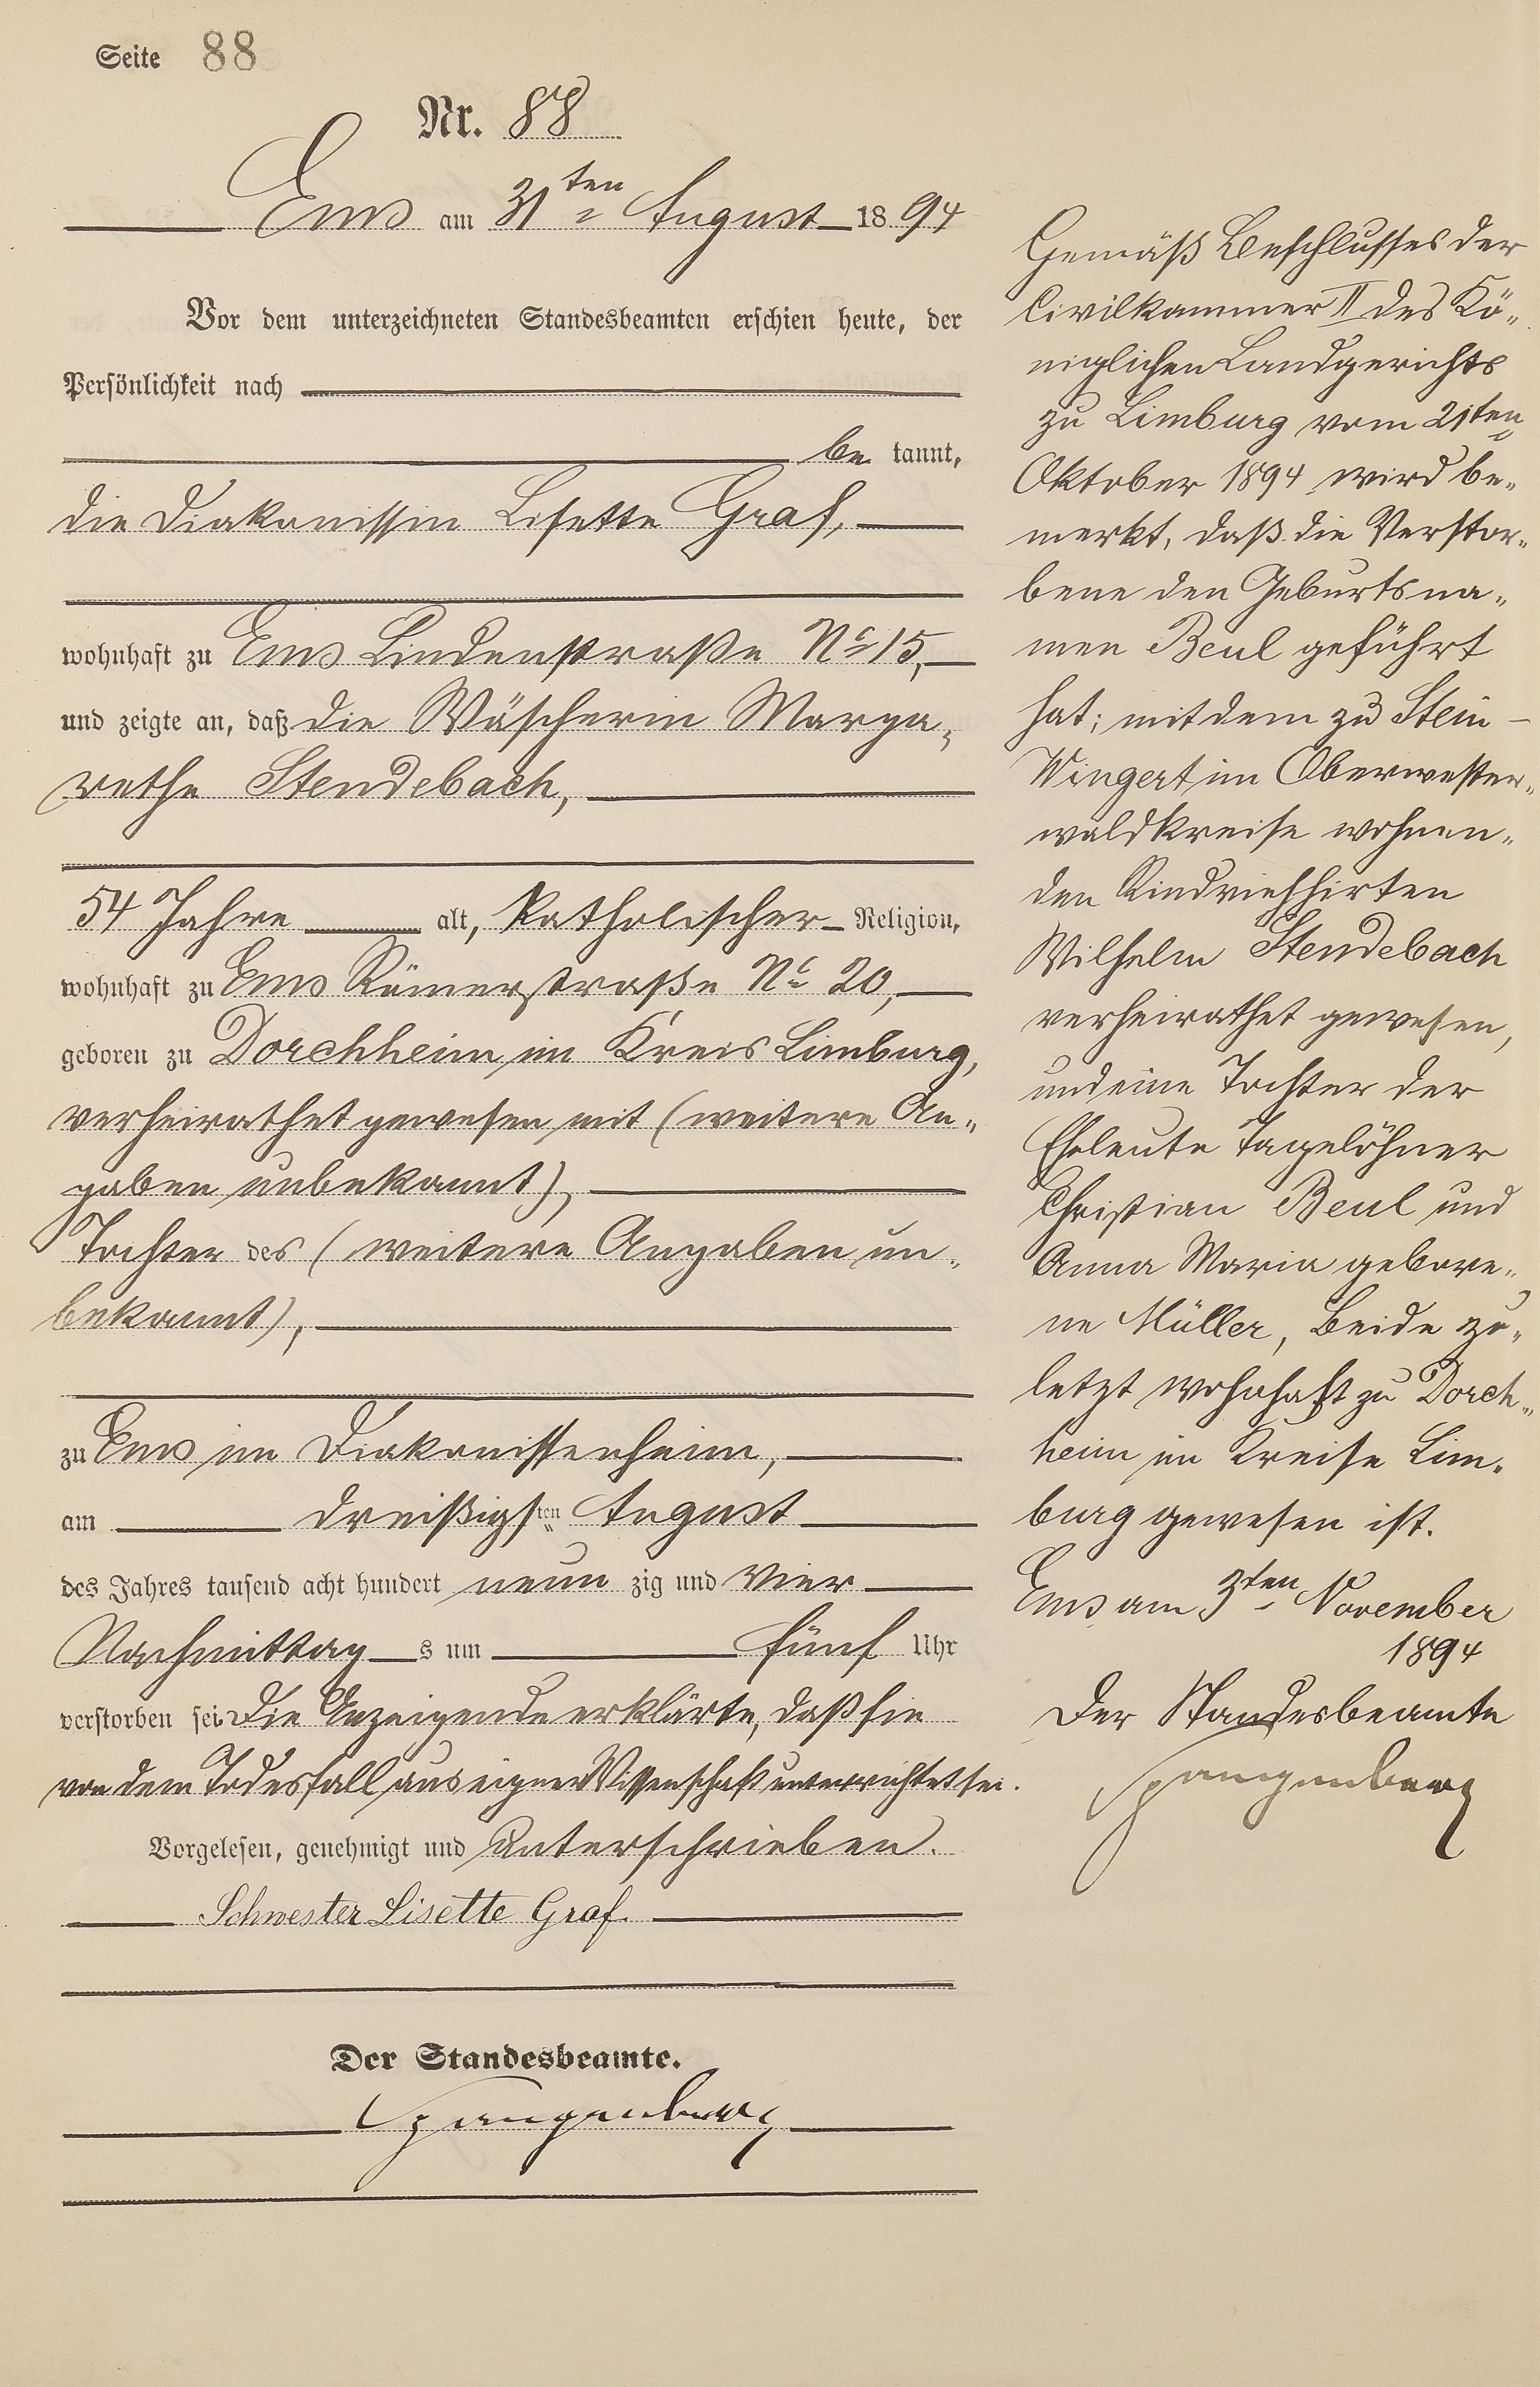 Seite 88
Nr. 88
Ems am 31ten August 1894
Vor dem unterzeichneten Standesbeamten erschien heute, der
Persönlichkeit nach
be kannt,
die Diakonissin Lisette Graf,
wohnhaft zu Ems Lindenstraße No 15,
und zeigte an, daß die Wäscherin Marga-
rethe Stendebach,
54 Jahre alt, katholischer Religion,
wohnhaft zu Ems Römerstraße No 20,
geboren zu Dorchheim im Kreis Limburg,
verheirathet gewesen mit (weitere An-
gaben unbekannt),
Tochter des (weitere Angaben un-
bekannt),
zu Ems im Diakonissenheim,
am dreißigsten August
des Jahres tausend acht hundert neun zig und vier
Nachmittag s um fünf Uhr
verstorben sei. Die Anzeigende erklärte, daß sie
von dem Todesfall aus eigner Wissenschaft unterrichtet sei.
Vorgelesen, genehmigt und unterschrieben.
Schwester Lisette Graf.
Der Standesbeamte.
Spangenberg
Gemäß Beschlusses der
Civilkammer II des Kö-
niglichen Landgerichts
zu Limburg vom 21ten
Oktober 1894 wird be-
merkt, daß die Verstor-
bene den Geburtsna-
men Beul geführt
hat; mit dem zu Stein-
Wingert im Oberwester-
waldkreise wohnen-
den Rindviehhirten
Wilhelm Stendebach
verheirathet gewesen,
und eine Tochter der
Eheleute Tagelöhner
Christian Beul und
Anna Maria gebore-
ne Müller, Beide zu-
letzt wohnhaft zu Dorch-
heim im Kreise Lim-
burg gewesen ist.
Ems am 3ten November
1894
Der Standesbeamte
Spangenberg